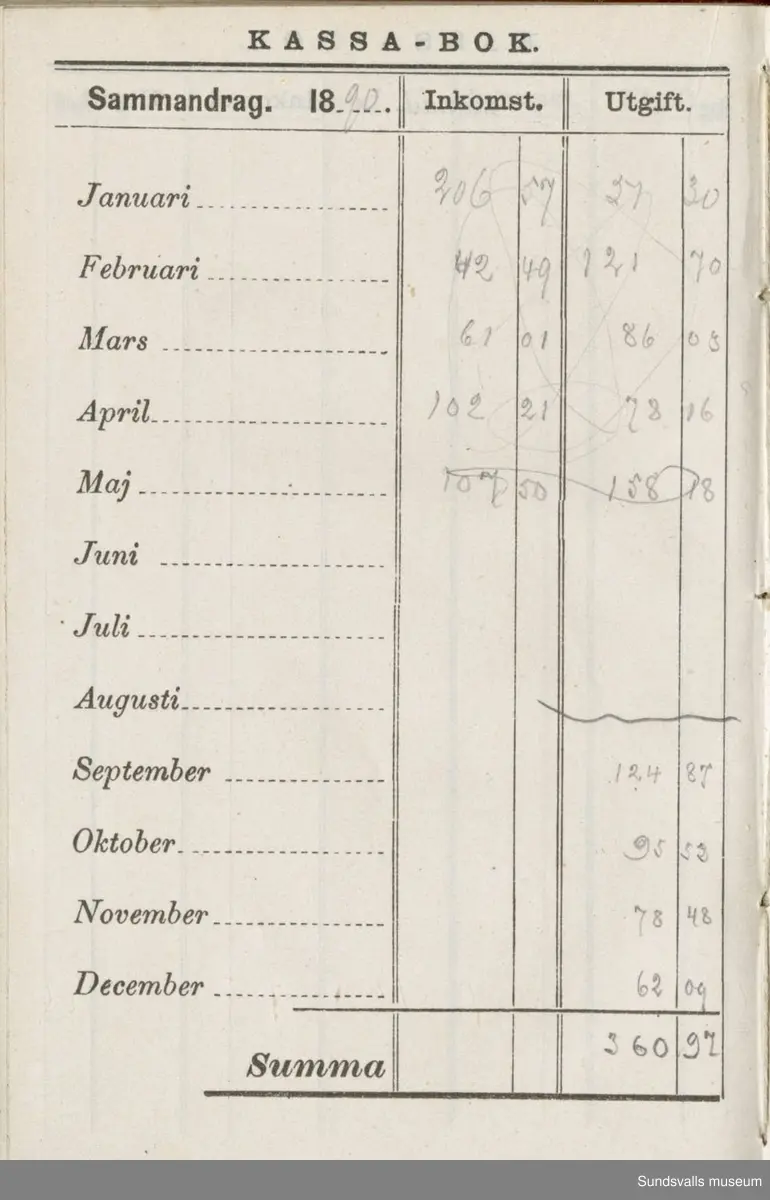 KASSA-BOK.
Sammandrag. 1890. Inkomst. Utgift.
Januari 206 57 27 30
Februari 42 49 121 70
Mars 61 01 86 03
April 102 21 78 16
Maj 107 50 158 18
Juni
Juli
Augusti
September 124 87
Oktober 95 53
November 78 48
December 62 09
Summa 360 97
Sundsvalls museum